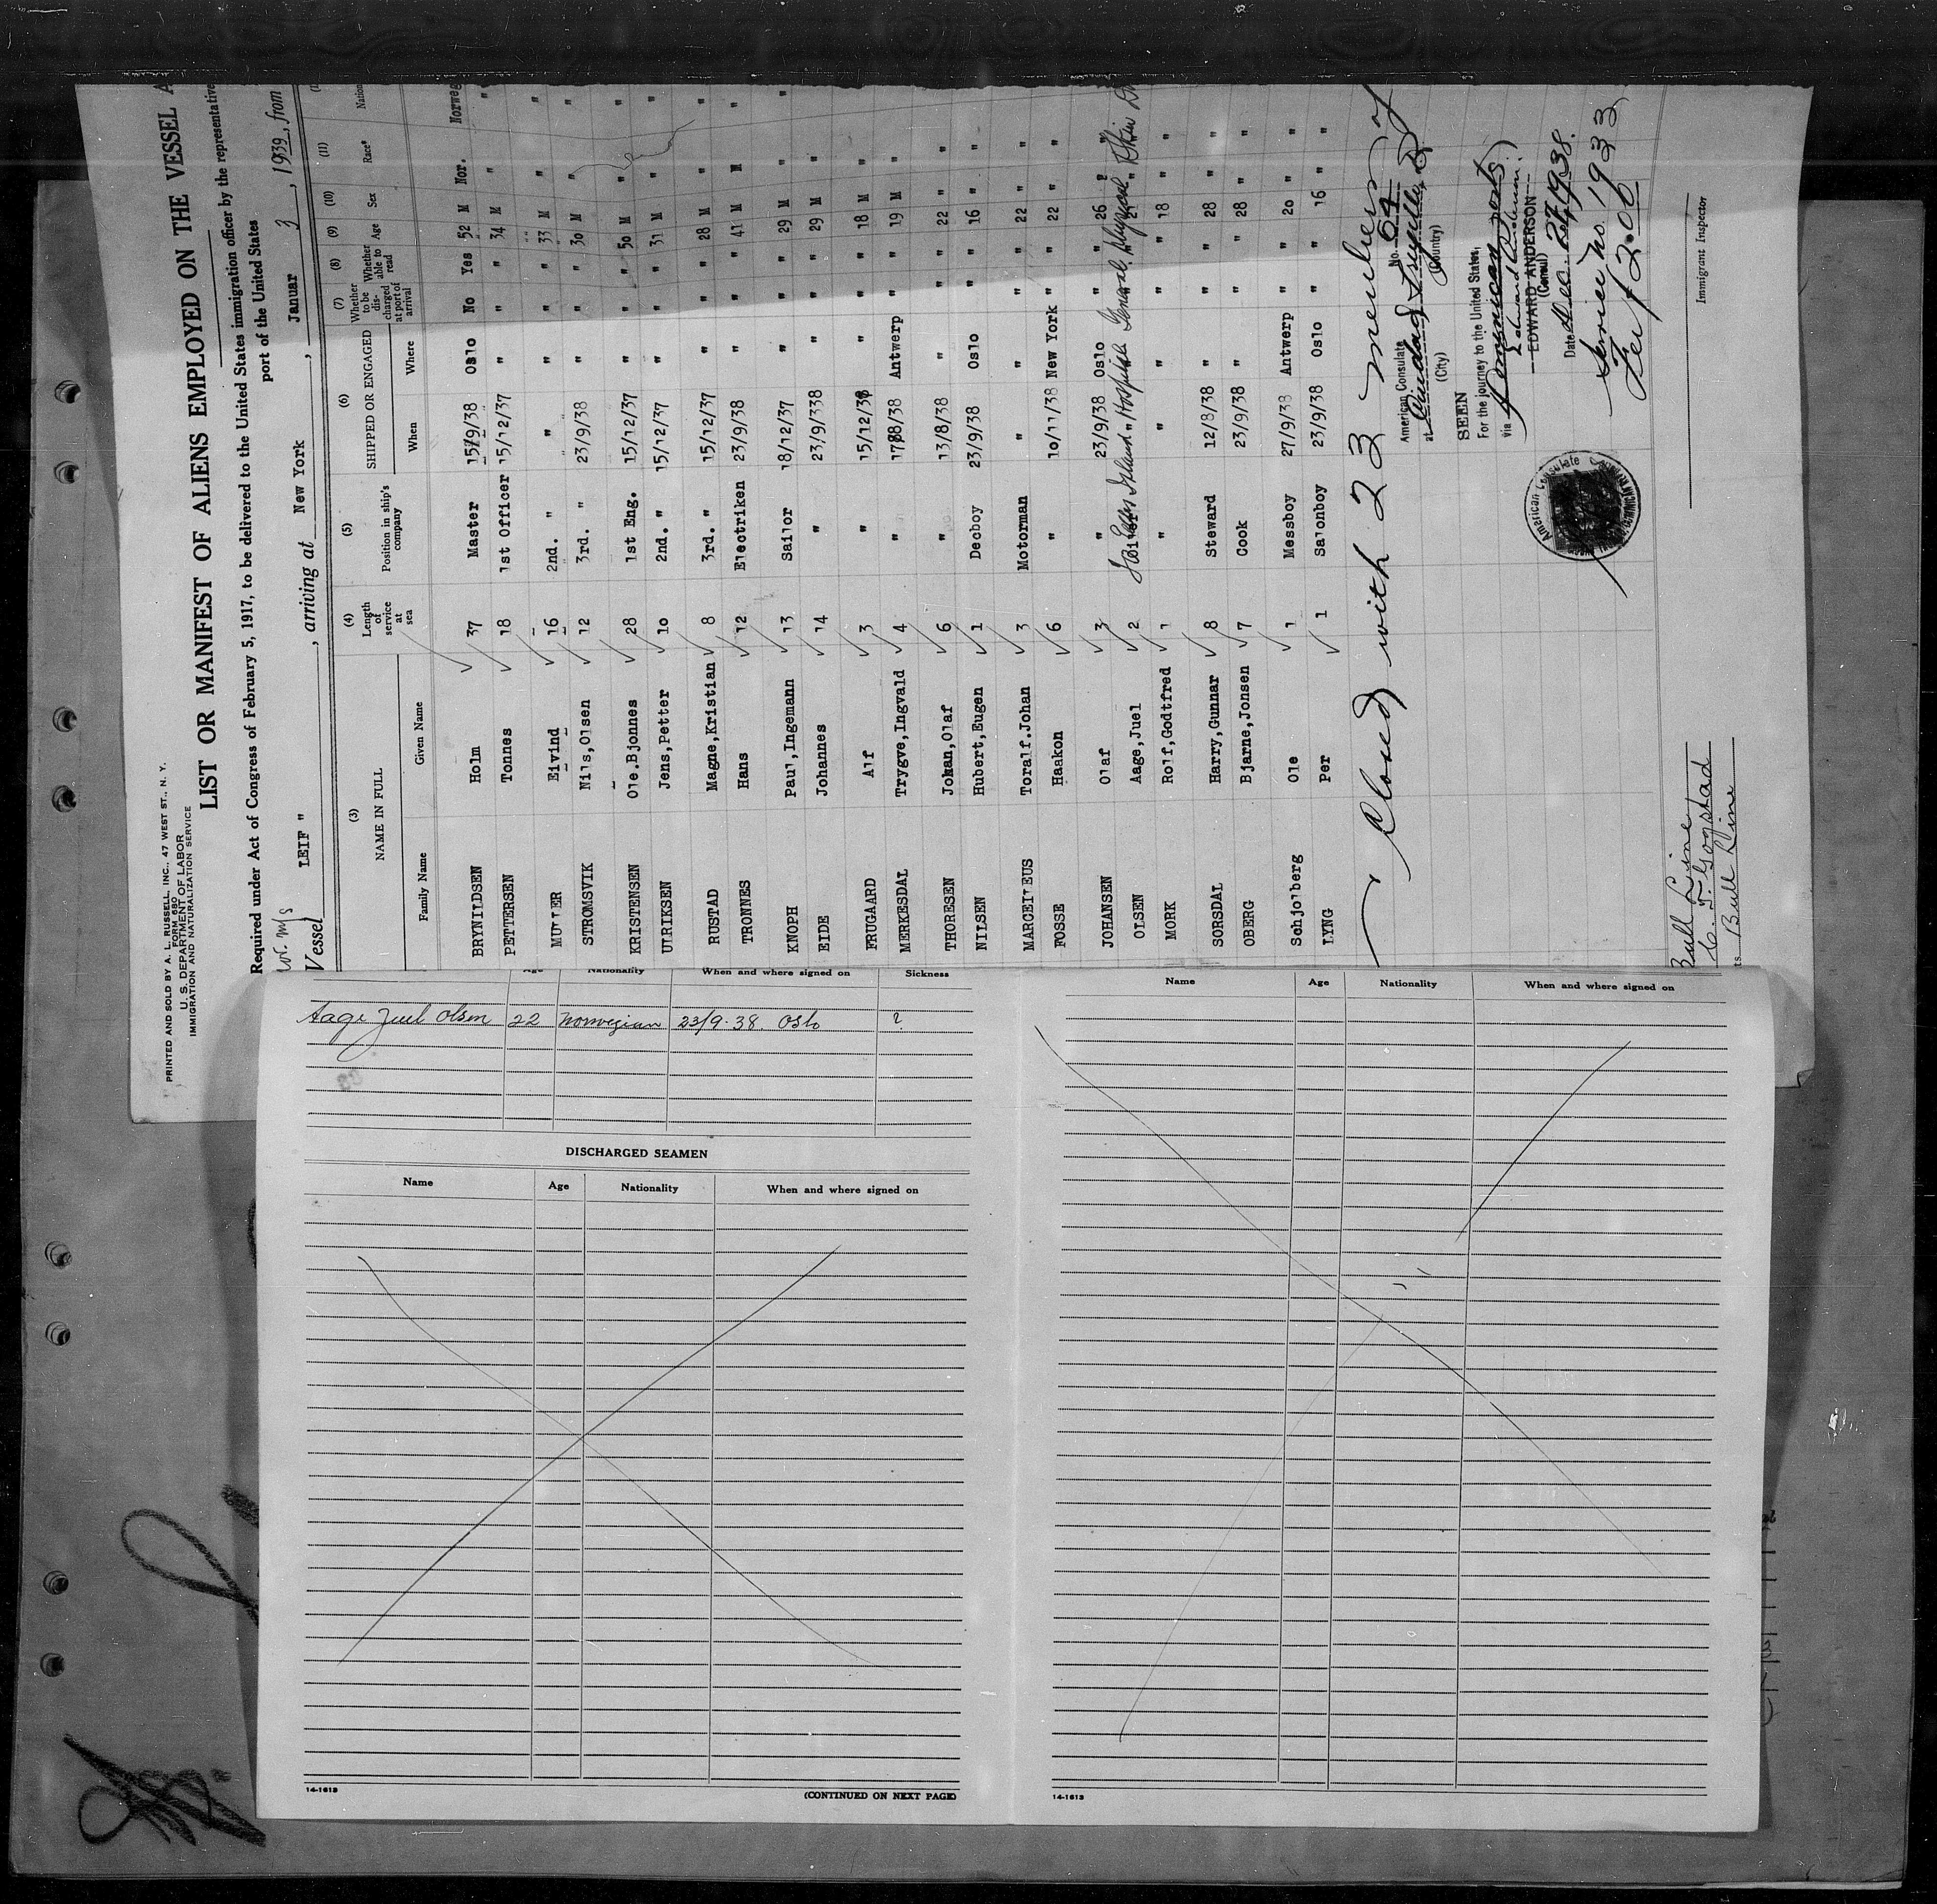 PRINTED AND SOLD BY A. L. RUSSELL, INC., 47 WEST ST., N. Y.
FORM 680
U. S. DEPARTMENT OF LABOR
IMMIGRATION AND NATURALIZATION SERVICE
LIST OR MANIFEST OF ALIENS EMPLOYED ON THE VESSEL A
Required under Act of Congress of February 5, 1917, to be delivered to the United States immigration officer by the representative
port of the United States
Vessel LEIF " , arriving at New York , Januar 3 , 1939, from
(3) (4) (5) (6) (7) (8) (9) (10) (11)
NAME IN FULL Length of service at sea Position in ship's company SHIPPED OR ENGAGED Whether to be discharged at port of arrival Whether able to read Age Sex Race* Nation
Family Name Given Name When Where
BRYNILDSEN Holm 37 Master 15/9/38 Oslo No Yes 52 M Nor. Norweg
PETTERSEN Tonnes 18 1st Officer 15/12/37 " " " 34 M " "
MULLER Eivind 16 2nd. " " " " " 33 M " "
STROMSVIK Nils,Olsen 12 3rd. " 23/9/38 " " " 30 M " "
KRISTENSEN Ole.Bjonnes 28 1st Eng. 15/12/37 " " " 50 M " "
ULRIKSEN Jens,Petter 10 2nd. " 15/12/37 " " " 31 M " "
RUSTAD Magne,Kristian 8 3rd. " 15/12/37 " " " 28 M " "
TRONNES Hans 12 Electriken 23/9/38 " " " 41 M " "
KNOPH Paul,Ingemann 13 Sailor 18/12/37 " " " 29 M " "
EIDE Johannes 14 " 23/9/338 " " " 29 M " "
FRUGAARD Alf 3 " 15/12/38 " " " 18 M " "
MERKESDAL Trygve,Ingvald 4 " 17/8/38 Antwerp " " 19 M " "
THORESEN Johan,Olaf 6 " 13/8/38 " " " 22 " " "
NILSEN Hubert,Eugen 1 Decboy 23/9/38 Oslo " " 16 " " "
MARCELIUS Toralf.Johan 3 Motorman " " " " 22 " " "
FOSSE Haakon 6 " 10/11/38 New York " " 22 " " "
JOHANSEN Olaf 3 " 23/9/38 Oslo " " 26 "
OLSEN Aage,Juel 2 Ellis Island Hospital General 21
MORK Rolf,Godtfred 1 " " " " " 18 " " "
SORSDAL Harry,Gunnar 8 Steward 12/8/38 " " " 28 " " "
OBERG Bjarne,Jonsen 7 Cook 23/9/38 " " " 28 " " "
Schjolberg Ole 1 Messboy 27/9/38 Antwerp " " 20 " " "
LYNG Per 1 Salonboy 23/9/38 Oslo " " 16 " " "
Closed with 23 members of
American Consulate No. 64
at Ciudad Trujillo, D
(City) (Country)
SEEN
For the journey to the United States,
via American ports
EDWARD ANDERSON
(Consul)
Date Dec. 27, 1938.
Service No. 1933
Fee $2.00
American Consulate
Immigrant Inspector
Bull Line
Bull Line
Age Nationality When and where signed on Sickness
Aage Juel Olsen 22 Norwegian 23/9-38. Oslo ?
DISCHARGED SEAMEN
Name Age Nationality When and where signed on
14-1613
(CONTINUED ON NEXT PAGE)
Name Age Nationality When and where signed on
14-1613